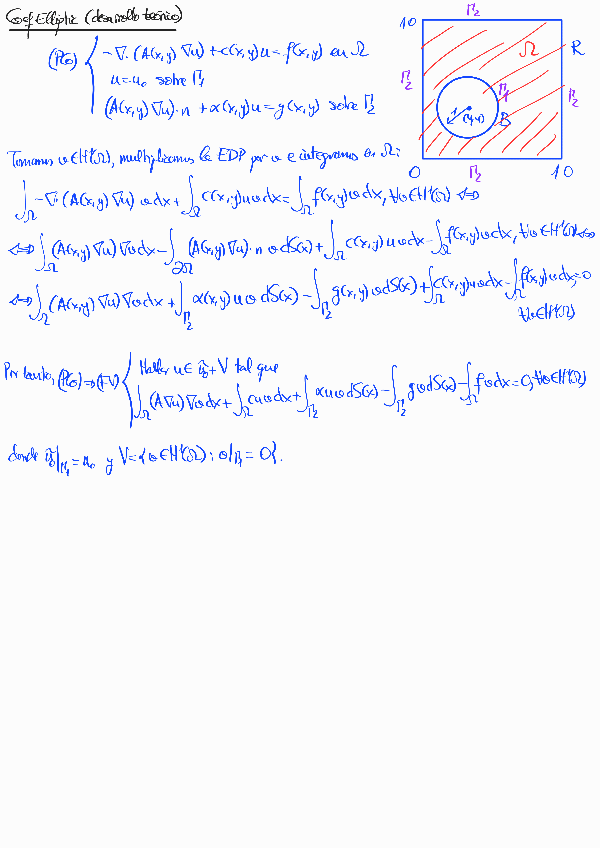 Coef Elliptic (desarrollo teórico)
(P0) { -∇·(A(x,y)∇u)+c(x,y)u=f(x,y) en Ω
u=u₀ sobre Γ₁
(A(x,y)∇u)·n+α(x,y)u=g(x,y) sobre Γ₂
10 Γ₂
Ω R
Γ₂ Γ₁ Γ₂
1 (4,4) B
0 Γ₂ 10
Tomamos v∈H¹(Ω), multiplicamos la EDP por v e integramos en Ω:
∫_Ω -∇·(A(x,y)∇u)vdx+∫_Ω c(x,y)uvdx=∫_Ω f(x,y)vdx, ∀v∈H¹(Ω) ⇔
⇔ ∫_Ω (A(x,y)∇u)∇vdx-∫_∂Ω (A(x,y)∇u)·n vdS(x)+∫_Ω c(x,y)uvdx-∫_Ω f(x,y)vdx, ∀v∈H¹(Ω) ⇔
⇔ ∫_Ω (A(x,y)∇u)∇vdx+∫_Γ₂ α(x,y)uvdS(x)-∫_Γ₂ g(x,y)vdS(x)+∫_Ω c(x,y)uvdx-∫_Ω f(x,y)vdx=0
∀v∈H¹(Ω)
Por tanto, (P0)⇒(FV) { Hallar u∈ũ₀+V tal que
∫_Ω (A∇u)∇vdx+∫_Ω cuvdx+∫_Γ₂ αuvdS(x)-∫_Γ₂ gvdS(x)-∫_Ω fvdx=0, ∀v∈H¹(Ω)
donde ũ₀|_Γ₁=u₀ y V={v∈H¹(Ω): v|_Γ₁=0}.